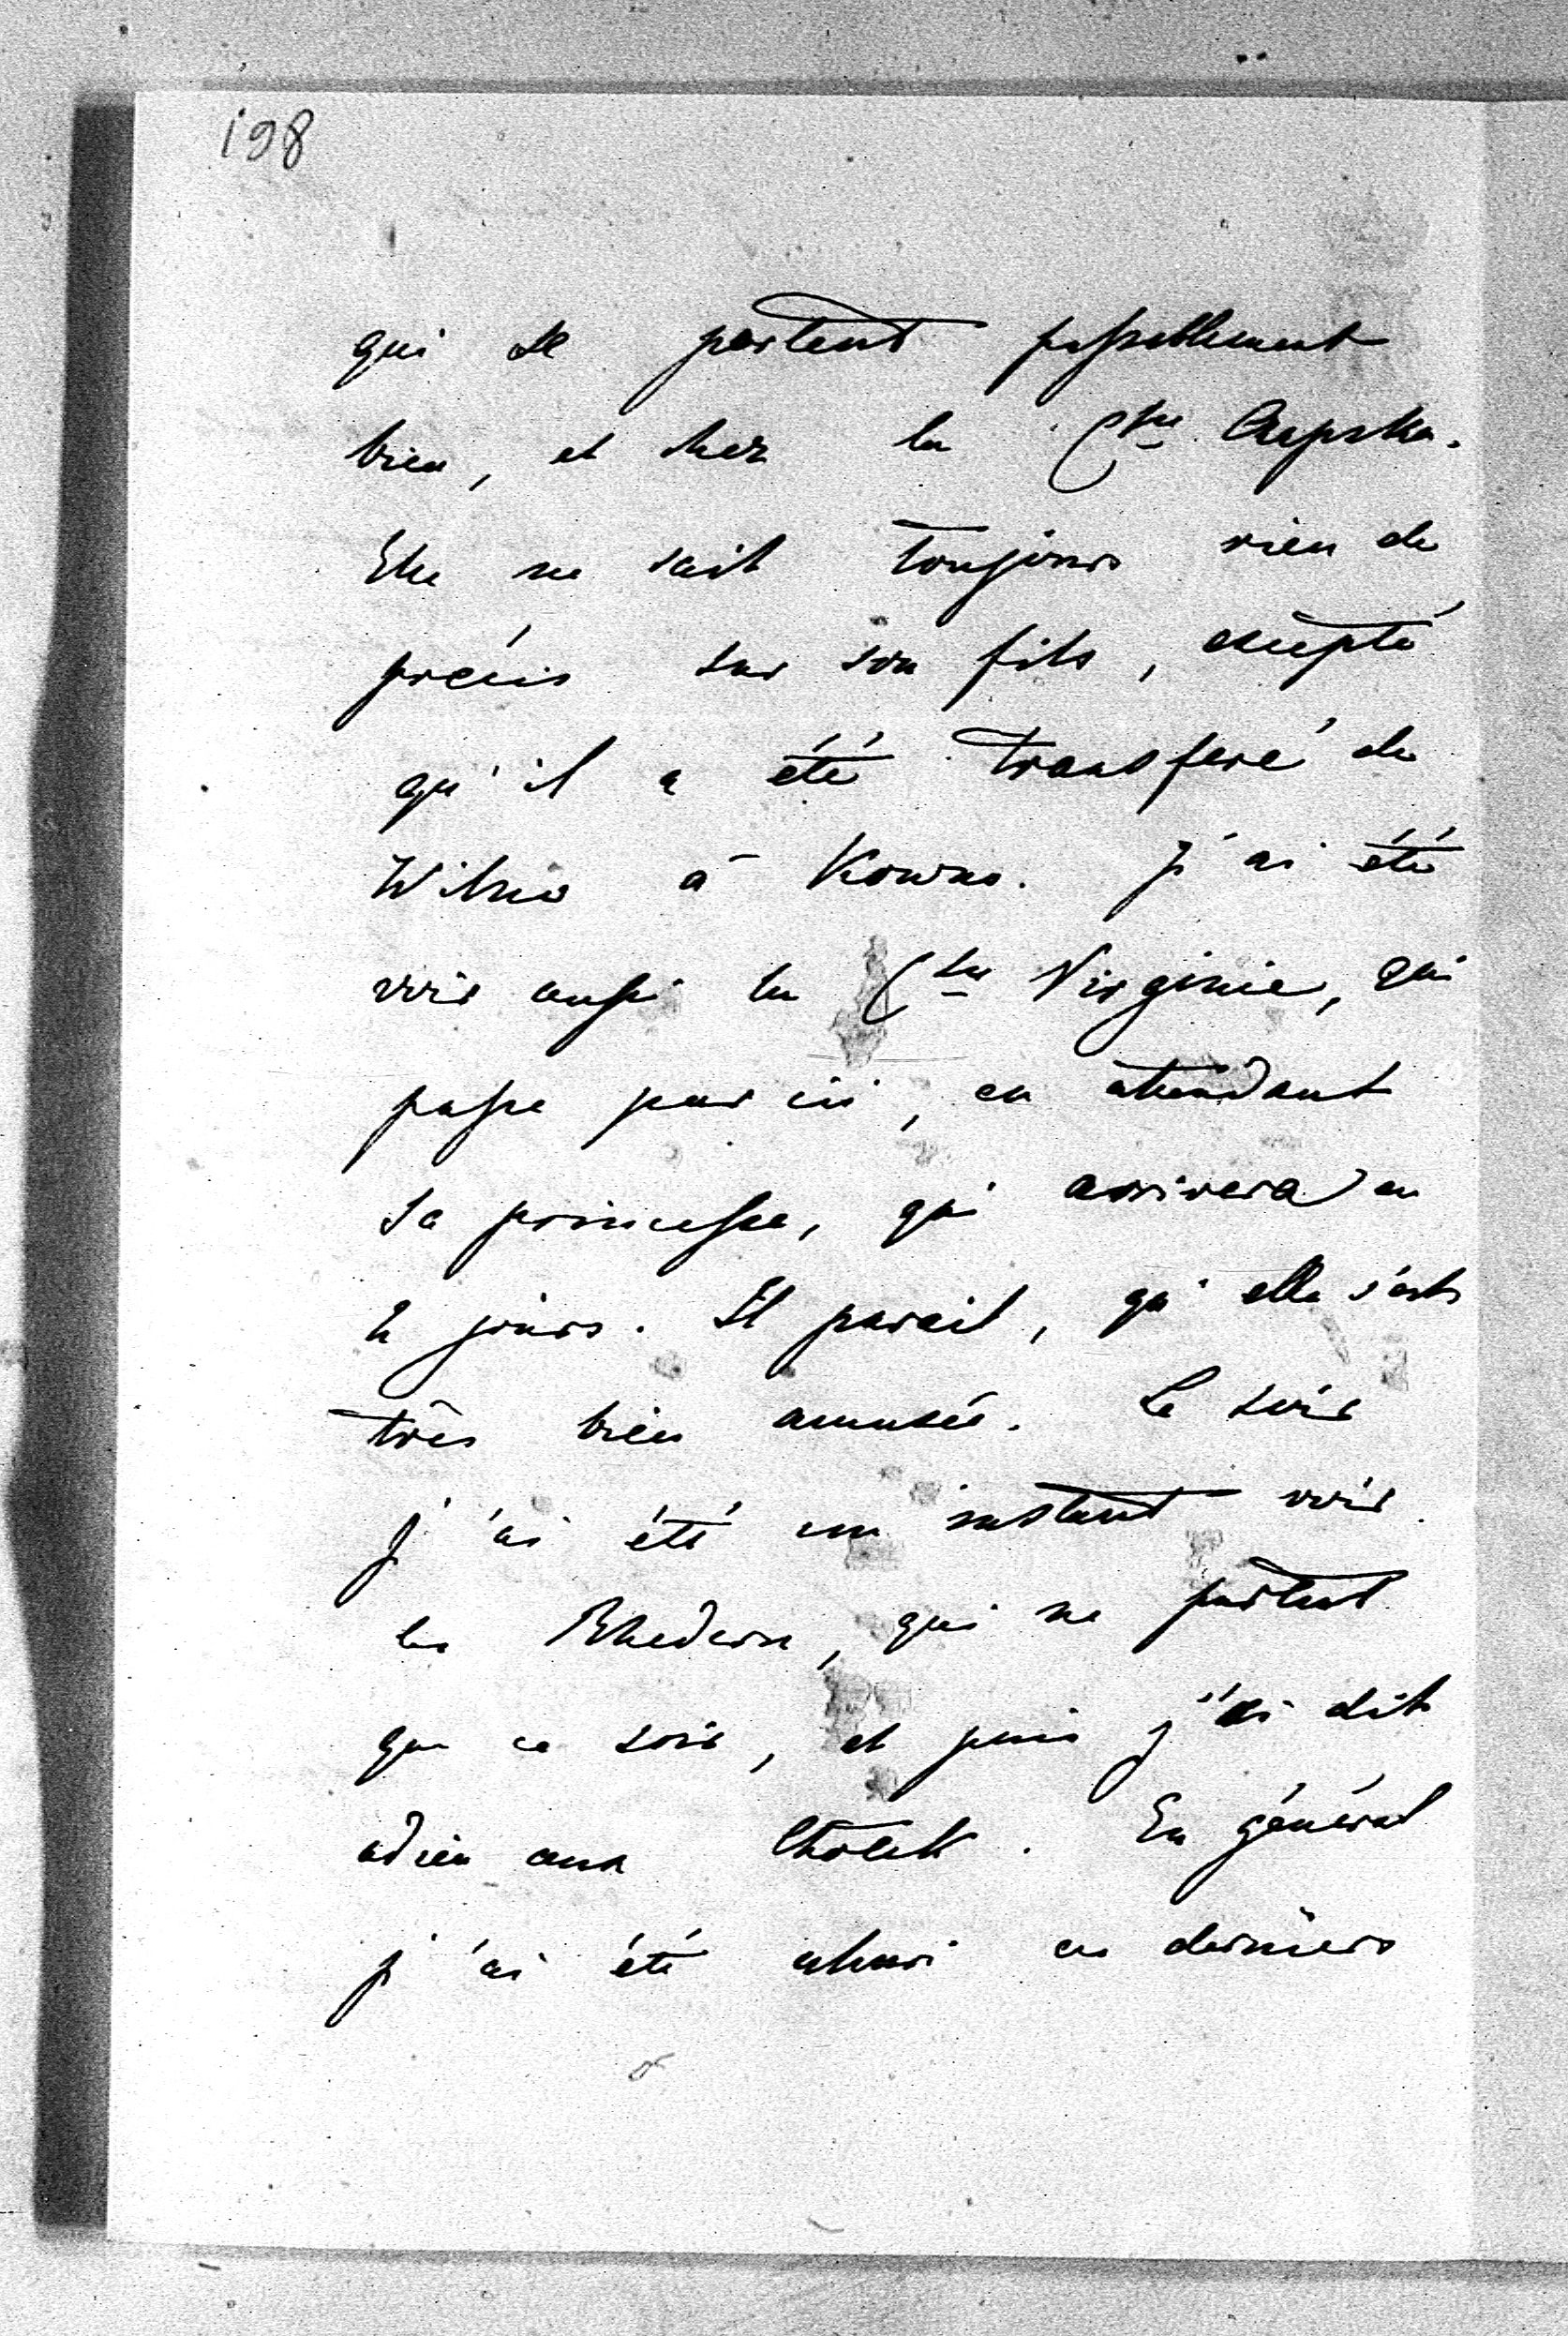 198
qui se portent passablement
bien, et chez la Ctsse
Elle ne sait toujours rien de
précis sur son fils, excepté
qu'il a été transferé de
Wilno à Kowno. J'ai été
voir aussi la Ctsse Virginie, qui
passe par ici, en attendant
sa princesse, qui arrivera en
2 jours. Il parait, qu'elle s'est
très bien amusée. Le soir
j'ai été un instant voir
les Rhedern, qui ne partent
que ce soir, et puis j'ai dit
adieu aux Chotek. En général
j'ai été ahuri ces derniers